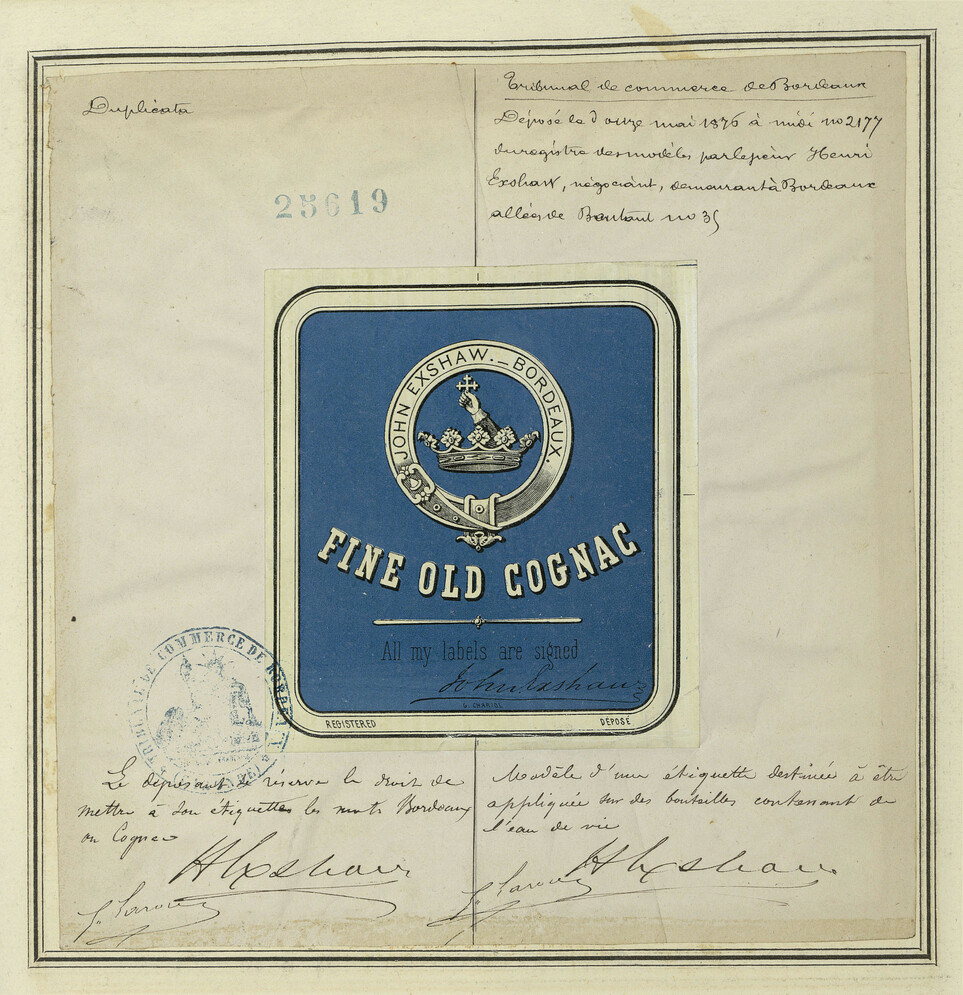 Duplicata
25619
Tribunal de commerce de Bordeaux
Déposé le onze mai 1876 à midi no 2177
du registre des modèles par le sieur Henri
Exshaw, négociant, demeurant à Bordeaux
allées de Boutaut no 35
JOHN EXSHAW._BORDEAUX.
FINE OLD COGNAC
All my labels are signed
John Exshaw
G. CHARIOL
REGISTERED
DÉPOSÉ
TRIBUNAL DE COMMERCE DE BORDEAUX
Le déposant se réserve le droit de
mettre à son étiquette les mots Bordeaux
ou Cognac
H Exshaw
Modèle d'une étiquette destinée à être
appliquée sur des bouteilles contenant de
l'eau de vie
H Exshaw